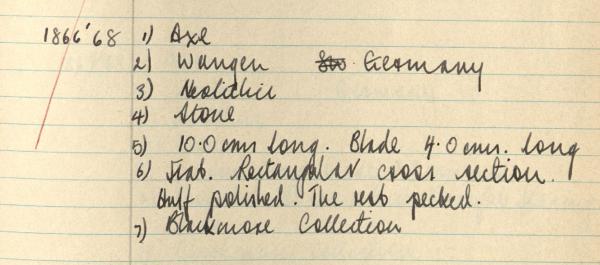 1866'68 1) Axe
2) Wangen Germany
3) Neolithic
4) Stone
5) 10.0 cms long. Blade 4.0 cms. long
6) Rectangular cross section.
polished. The rest pecked.
7) Blackmore Collection